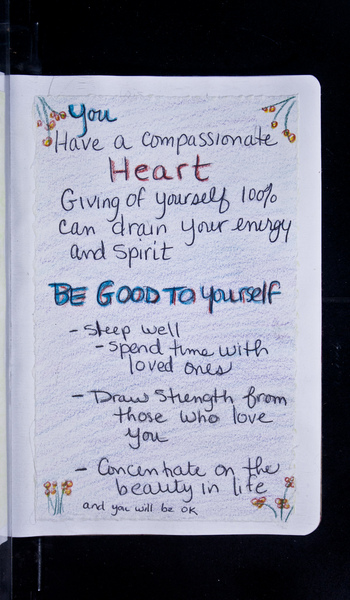 You
Have a compassionate
Heart
Giving of yourself 100%
can drain your energy
and spirit
BE GOOD TO yourself
- Sleep well
- spend time with
loved ones
- Draw Strength from
those who love
you
- Concentrate on the
beauty in life
and you will be ok